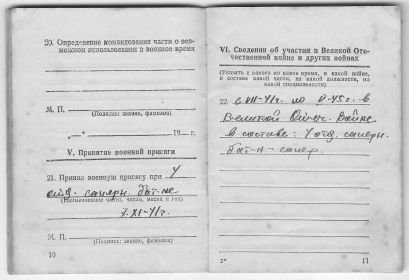 20. Определение командования части о воз-
можном использовании в военное время
М. П.
(Подпись: звание, фамилия)
„—“ 19— г.
V. Принятие военной присяги
21. Принял военную присягу при У
отд. саперн. бат-не
(Наименование части, число, месяц и год)
7-XI-41г.
М. П.
(Подпись: звание, фамилия)
10
VI. Сведения об участии в Великой Оте-
чественной войне и других войнах
(Указать с какого по какое время, в какой войне,
в составе какой части, на какой должности, по
какой специальности)
22. с VII-41г. по V-45г. в
Великой Отеч. Войне
в составе: У отд. саперн.
бат-н - сапер.
2*
11